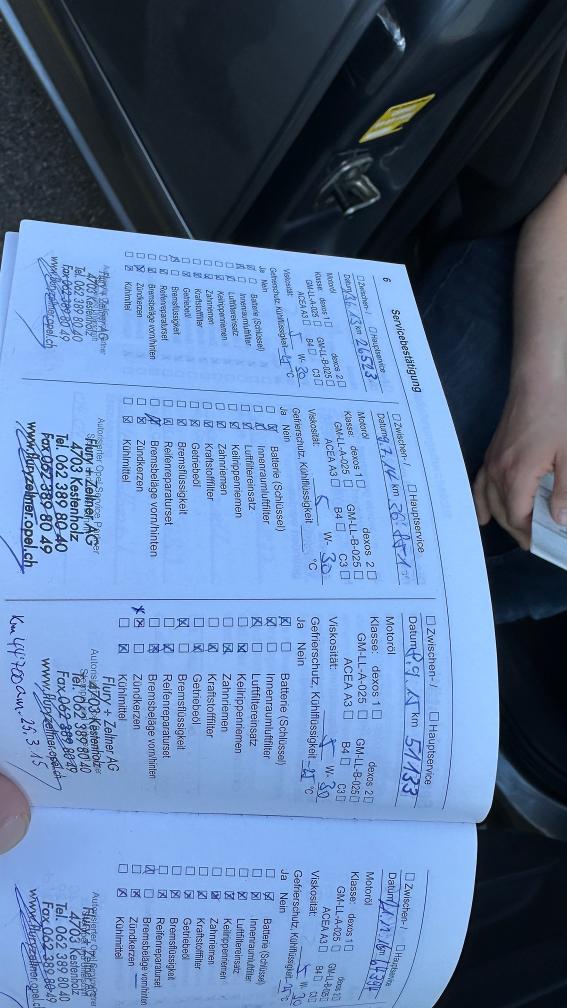 6
Servicebestätigung
☐ Zwischen- / ☐ Hauptservice
Datum km 26523
Motoröl dexos 2 ☐
Klasse: dexos 1 ☐ GM-LL-B-025 ☐
GM-LL-A-025 ☐ C3 ☐
ACEA A3 ☐ B4 ☐
Viskosität: 5 W- 30
Gefrierschutz, Kühlflüssigkeit °C
Ja Nein
Batterie (Schlüssel)
Innenraumluftfilter
Luftfiltereinsatz
Keilrippenriemen
Zahnriemen
Kraftstofffilter
Getriebeöl
Bremsflüssigkeit
Reifenreparaturset
Bremsbeläge vorn/hinten
Zündkerzen
Kühlmittel
Flury + Zellner AG
4703 Kestenholz
Tel. 062 389 80 40
Fax 062 389 80 49
www.fluryzellner.opel.ch
☐ Zwischen- / ☐ Hauptservice
Datum 9.7.14 km
Motoröl dexos 2 ☐
Klasse: dexos 1 ☐ GM-LL-B-025 ☐
GM-LL-A-025 ☐ C3 ☐
ACEA A3 ☐ B4 ☐
Viskosität: 5 W- 30
Gefrierschutz, Kühlflüssigkeit °C
Ja Nein
Batterie (Schlüssel)
Innenraumluftfilter
Luftfiltereinsatz
Keilrippenriemen
Zahnriemen
Kraftstofffilter
Getriebeöl
Bremsflüssigkeit
Reifenreparaturset
Bremsbeläge vorn/hinten
Zündkerzen
Kühlmittel
Autorisierte Opel Service Partner
Flury + Zellner AG
4703 Kestenholz
Tel. 062 389 80 40
Fax 062 389 80 49
www.fluryzellner.opel.ch
☐ Zwischen- / ☐ Hauptservice
Datum km 51133
Motoröl dexos 2 ☐
Klasse: dexos 1 ☐ GM-LL-B-025 ☐
GM-LL-A-025 ☐ C3 ☐
ACEA A3 ☐ B4 ☐
Viskosität: 5 W- 30
Gefrierschutz, Kühlflüssigkeit °C
Ja Nein
Batterie (Schlüssel)
Innenraumluftfilter
Luftfiltereinsatz
Keilrippenriemen
Zahnriemen
Kraftstofffilter
Getriebeöl
Bremsflüssigkeit
Reifenreparaturset
Bremsbeläge vorn/hinten
Zündkerzen
Kühlmittel
Flury + Zellner AG
4703 Kestenholz
Tel. 062 389 80 40
Fax 062 389 80 49
www.fluryzellner.opel.ch
Km 44'700 am 25.3.15
☐ Zwischen- / ☐ Hauptservice
Datum km
Motoröl dexos 2 ☐
Klasse: dexos 1 ☐ GM-LL-B-025 ☐
GM-LL-A-025 ☐ C3 ☐
ACEA A3 ☐ B4 ☐
Viskosität: 5 W- 30
Gefrierschutz, Kühlflüssigkeit °C
Ja Nein
Batterie (Schlüssel)
Innenraumluftfilter
Luftfiltereinsatz
Keilrippenriemen
Zahnriemen
Kraftstofffilter
Getriebeöl
Bremsflüssigkeit
Reifenreparaturset
Bremsbeläge vorn/hinten
Zündkerzen
Kühlmittel
Tel. 062 389 80 40
Fax 062 389 80 49
www.fluryzellner.opel.ch